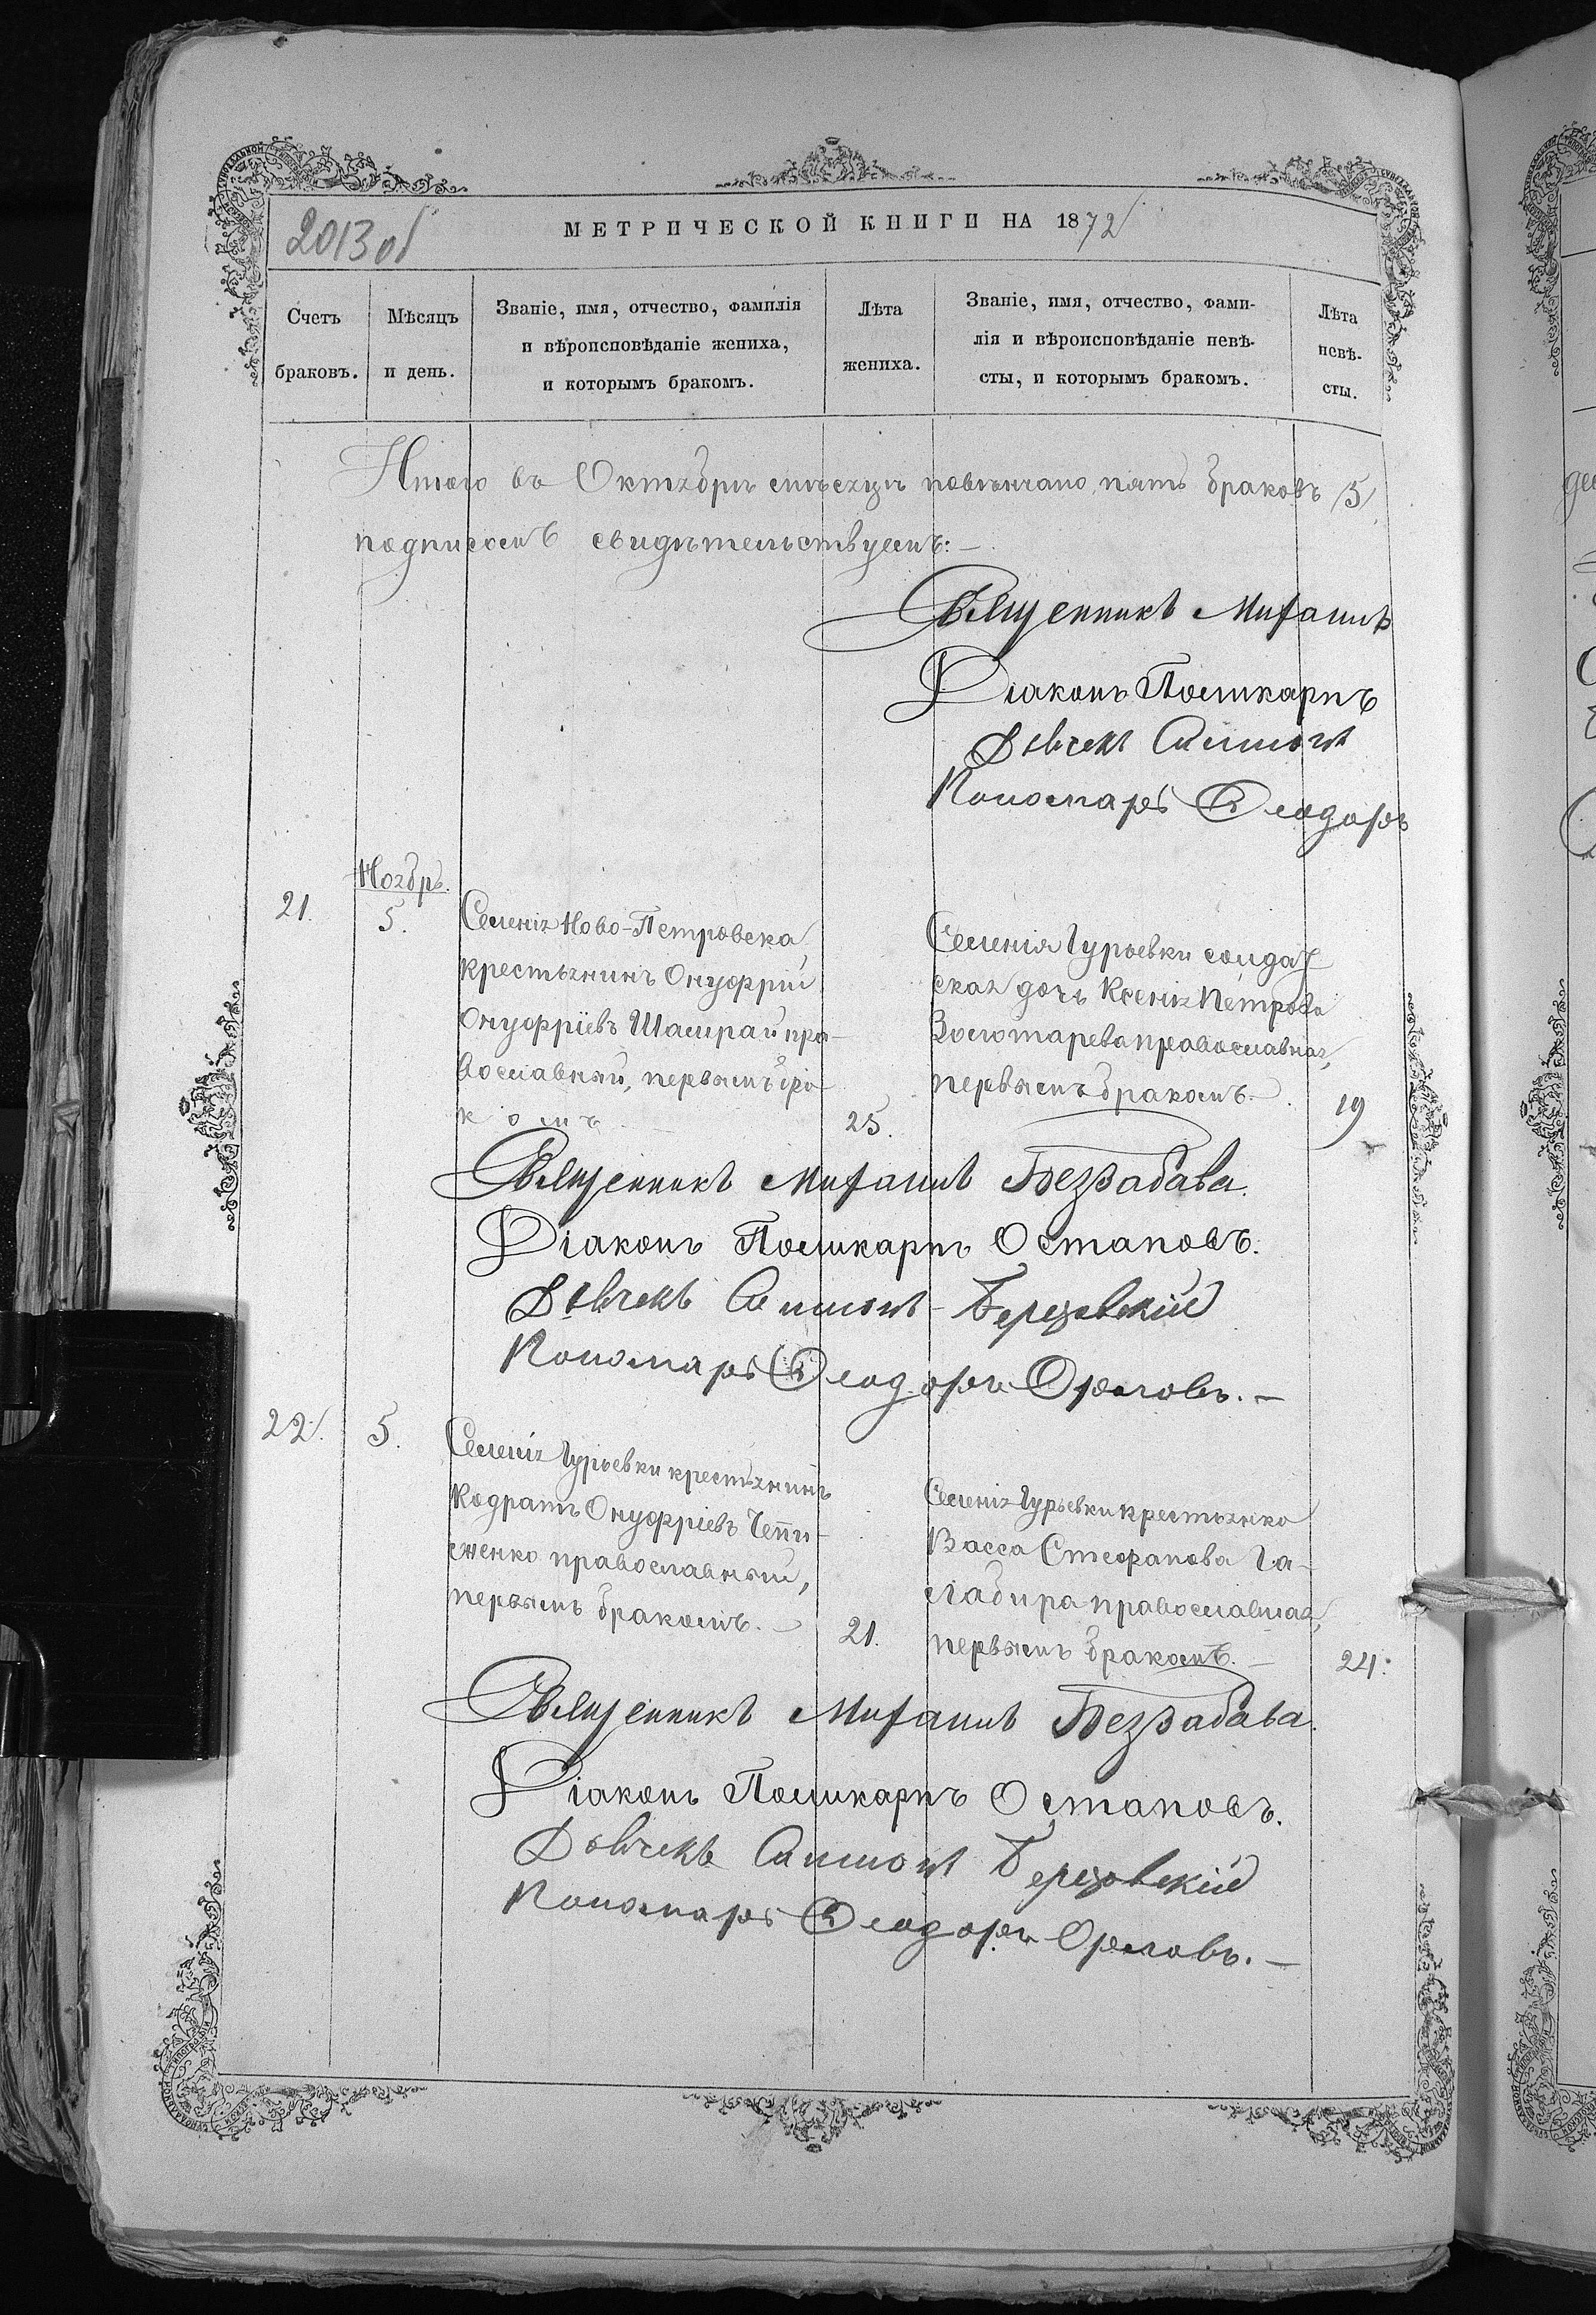 2013 об
МЕТРИЧЕСКОЙ КНИГИ НА 1872
Счетъ браковъ.
Мѣсяцъ и день.
Званіе, имя, отчество, фамилія
и вѣроисповѣданіе жениха,
и которымъ бракомъ.
Лѣта жениха.
Званіе, имя, отчество, фами-
лія и вѣроисповѣданіе невѣ-
сты, и которымъ бракомъ.
Лѣта невѣ-
сты.
Итого въ Октябрѣ мѣсяцѣ повѣнчано пять браковъ (5)
подписомъ свидѣтельствуемъ:—
Священникъ Михаилъ
Діаконъ Поликарпъ
Дьячекъ Симіонъ
Пономарь Ѳеодоръ
Ноябрь.
21.
5.
Селенія Ново-Петровска
крестьянинъ Онуфрій
Онуфріевъ Шамрай пра-
вославный, первымъ бра-
комъ
25.
Селенія Гурьевки солдат
ская дочь Ксенія Петрова
Золотарева православная,
первымъ бракомъ.
19
Священникъ Михаилъ Беззабава.
Діаконъ Поликарпъ Остаповъ.
Дьячекъ Симіонъ Березовскій
Пономарь Ѳеодоръ Орловъ.—
22.
5.
Селенія Гурьевки крестьянинъ
Кодратъ Онуфріевъ Чепи-
женко православный,
первымъ бракомъ.—
21.
Селенія Гурьевки крестьянка
Васса Стефанова Га-
православная,
первымъ бракомъ.—
24.
Священникъ Михаилъ Беззабава.
Діаконъ Поликарпъ Остаповъ.
Дьячекъ Симіонъ Березовскій
Пономарь Ѳеодоръ Орловъ.—